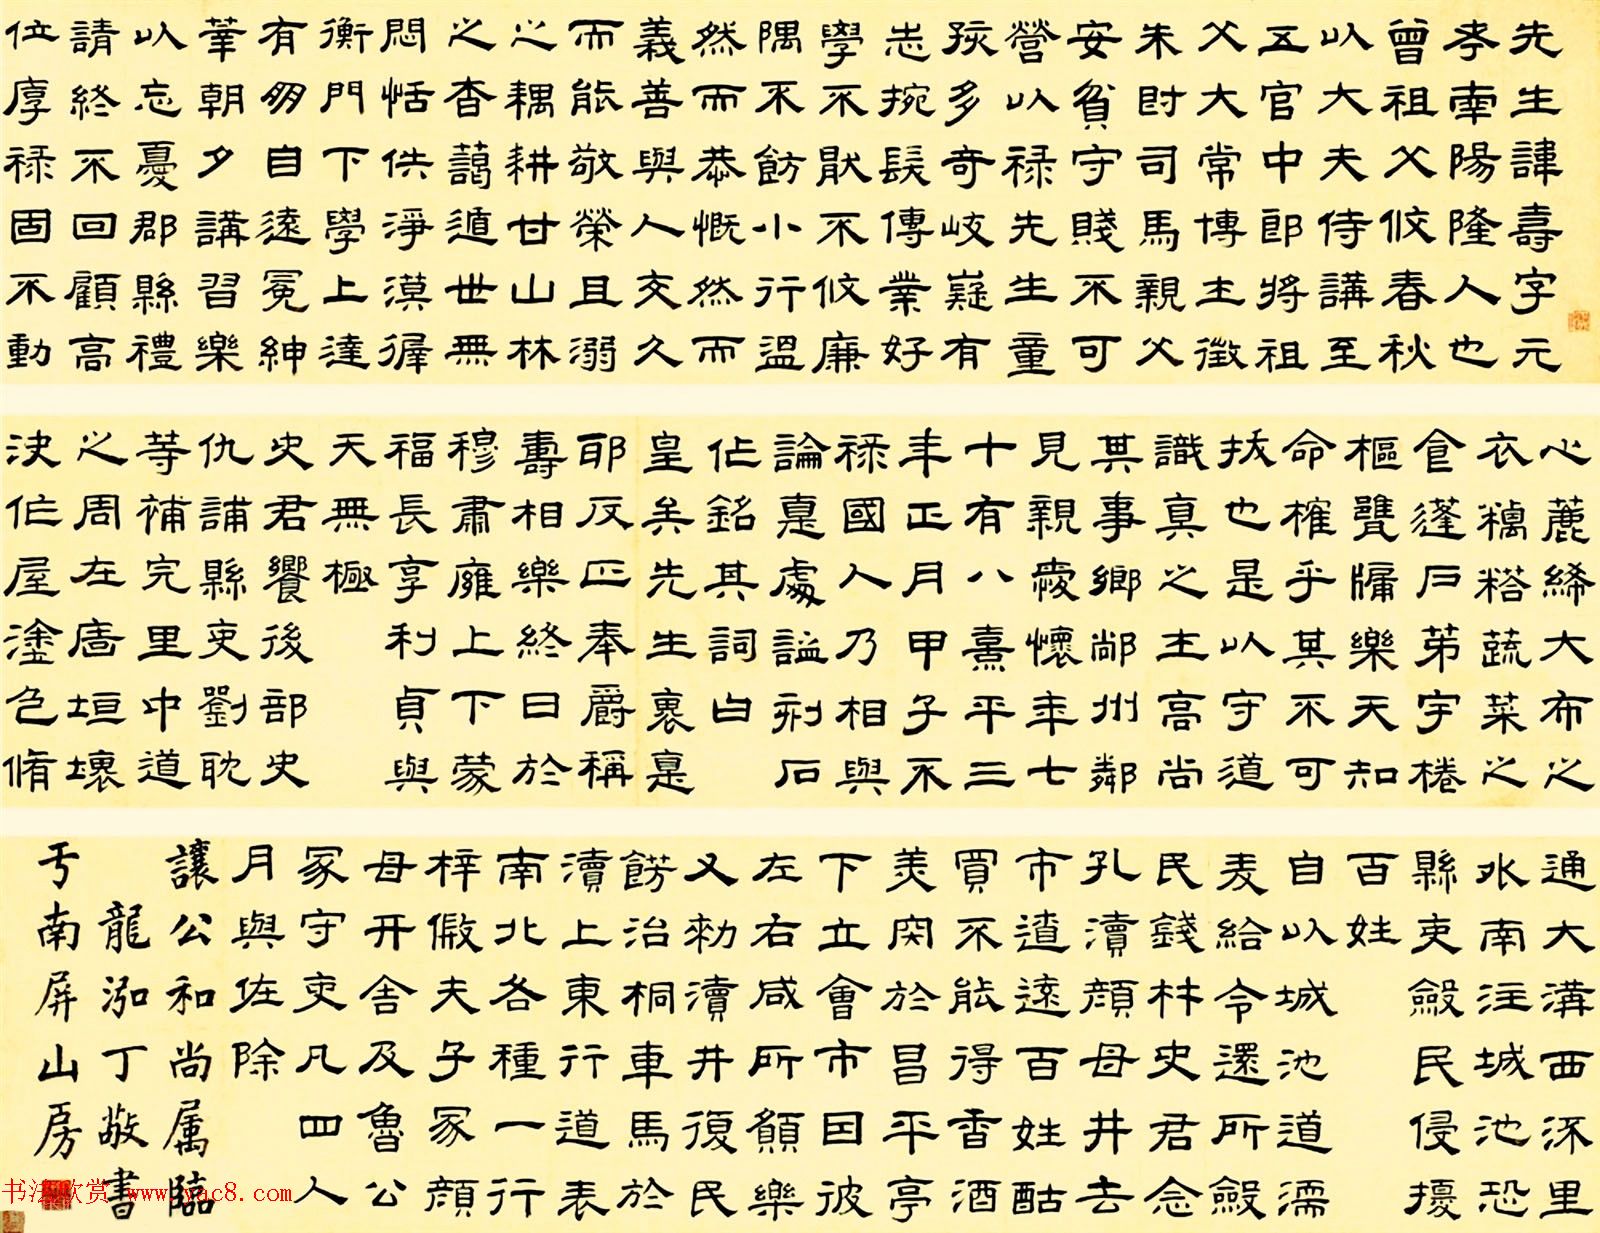 先生諱壽字元
孝南陽隆人也
曾祖父攸春秋
以大夫侍講至
五官中郎將祖
父大常博士徵
朱爵司馬親父
安貧守賤不可
營以祿先生童
孩多奇岐嶷有
志捥髮傳業好
學不猒不攸廉
隅不飭小行溫
然而恭慨然而
義善與人交久
而能敬榮且溺
之耦耕甘山林
之杳藹遁世無
悶恬佚淨漠徲
衡門下學上達
有朋自遠冕紳
莘朝夕講習樂
以忘憂郡縣禮
請終不回顧高
位厚祿固不動
心麤絺大布之
衣糲糌蔬菜之
食蓬戶茅宇棬
樞甕牖樂天知
命榷乎其不可
拔也是以守道
識真之士高尚
其事鄉鄰州鄰
見親歲懷年七
十有八熹平三
年正月甲子不
祿國人乃相與
論悳處謚刻石
作銘其詞曰
皇矣先生裹悳
耶反正奉爵稱
壽相樂終日於
穆肅雍上下蒙
福長享利貞與
天無極
史君饗後部史
仇誧縣吏劉耽
等補完里中道
之周左廧垣壞
決作屋塗色脩
通大溝西流里
水南注城池恐
縣吏斂民侵擾
百姓
自以城池道濡
麦給令還所斂
民錢材史君念
孔瀆顏母井去
市遼遠百姓酤
買不能得香酒
美肉於昌平亭
下立會市因彼
左右咸所願樂
又勑瀆井復民
餝治桐車馬於
瀆上東行道表
南北各種一行
梓假夫子冢顏
母开舍及魯公
冢守吏凡四人
月與佐除
讓公和尚屬臨
龍泓丁敬書
于南屏山房
书法欣赏 www.yac8.com